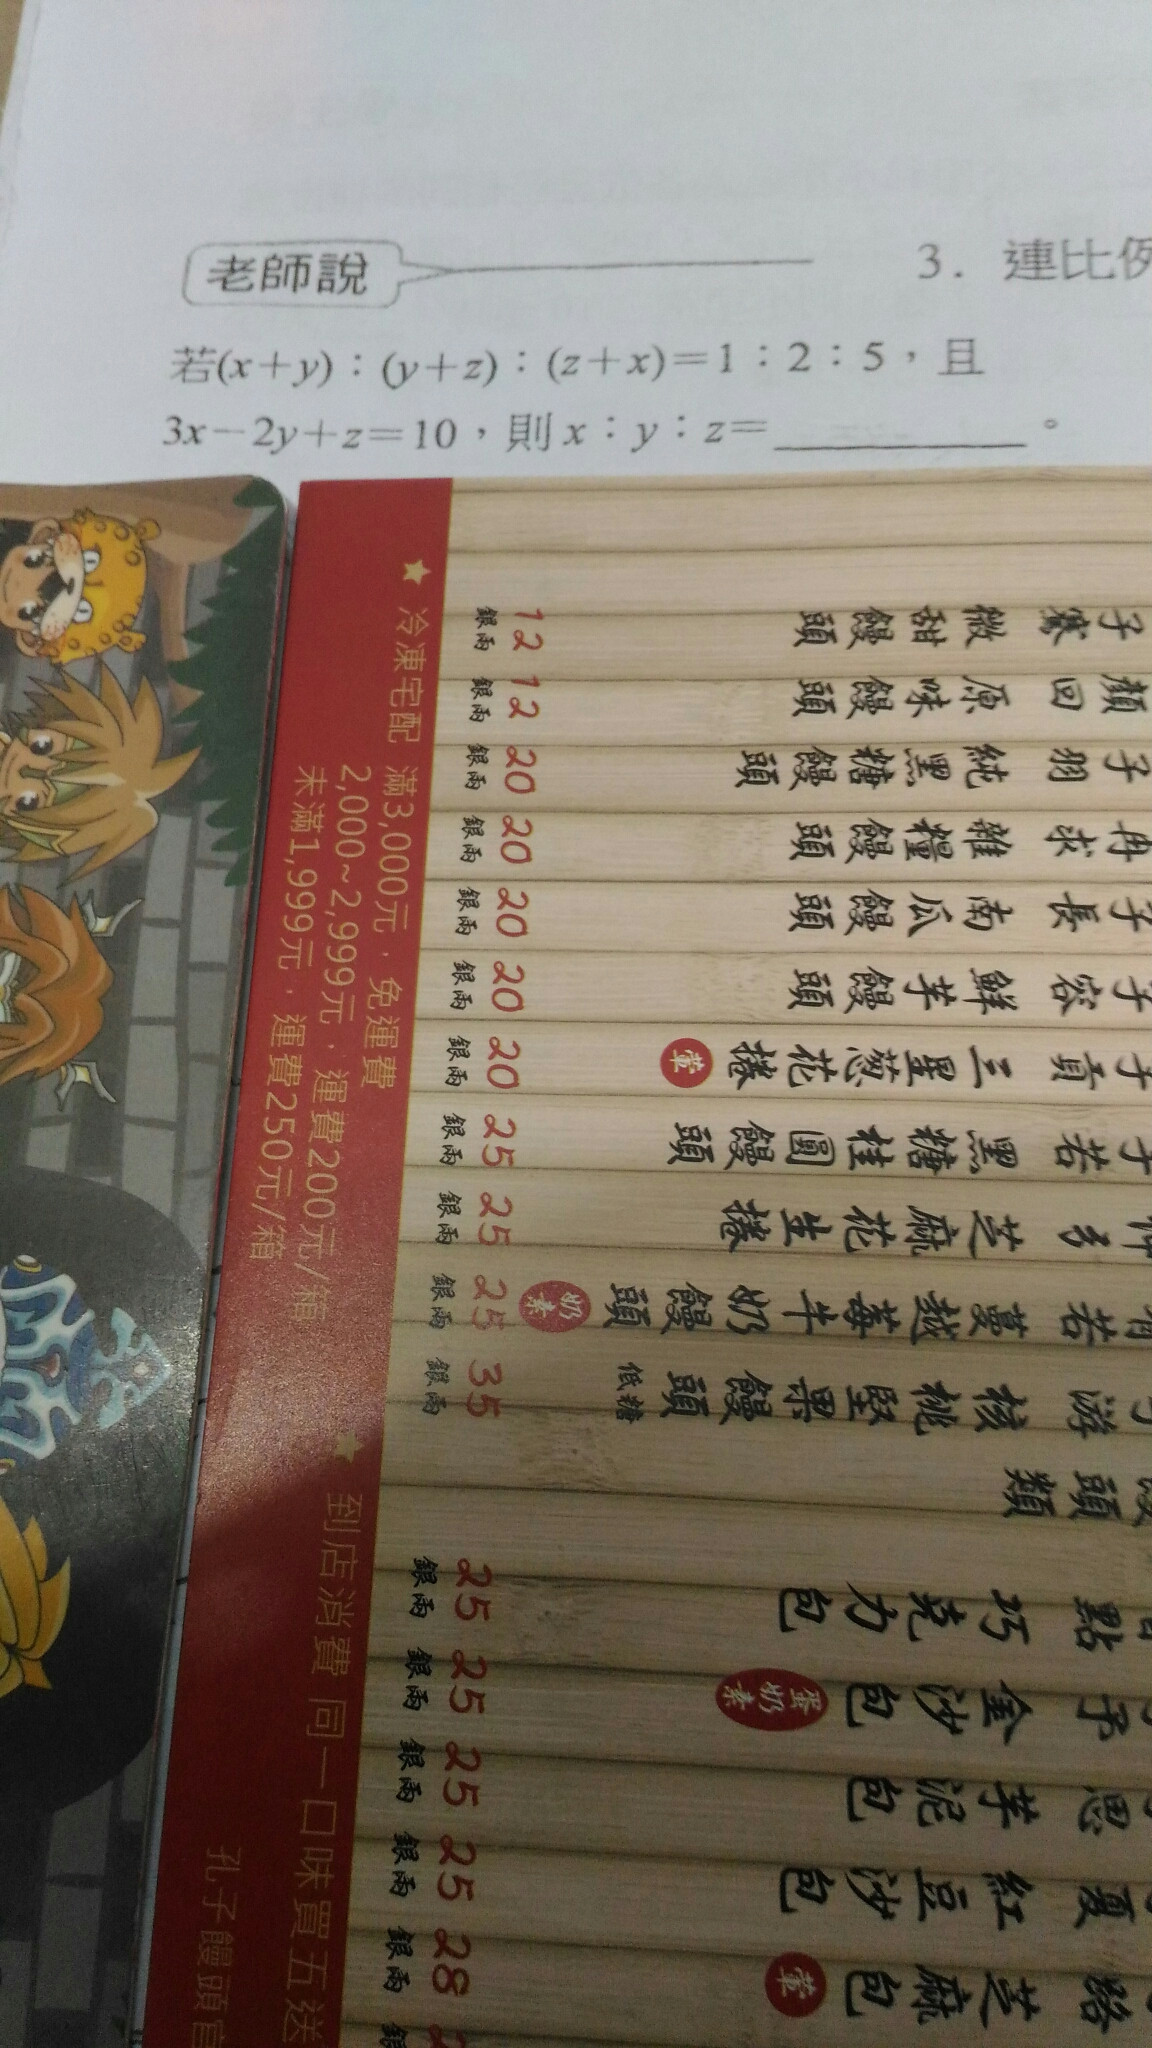 老師說
3. 連比例
若(x+y):(y+z):(z+x)=1:2:5,且
3x-2y+z=10,則 x:y:z=________。
★ 冷凍宅配 滿3,000元,免運費
2,000~2,999元,運費200元/箱
未滿1,999元,運費250元/箱
★ 到店消費 同一口味買五送
孔子饅頭官
子騫 微甜饅頭 12銀兩
顏回 原味饅頭 12銀兩
子羽 純黑糖饅頭 20銀兩
冉求 雜糧饅頭 20銀兩
子長 南瓜饅頭 20銀兩
子容 鮮芋饅頭 20銀兩
子貢 三星蔥花捲 葷 20銀兩
子若 黑糖桂圓饅頭 25銀兩
仲弓 芝麻花生捲 25銀兩
有若 蔓越莓牛奶饅頭 奶素 25銀兩
子游 核桃堅果饅頭 低糖 35銀兩
頭類
點 巧克力包 25銀兩
子 金沙包 蛋奶素 25銀兩
思 芋泥包 25銀兩
夏 紅豆沙包 25銀兩
路 芝麻包 葷 28銀兩